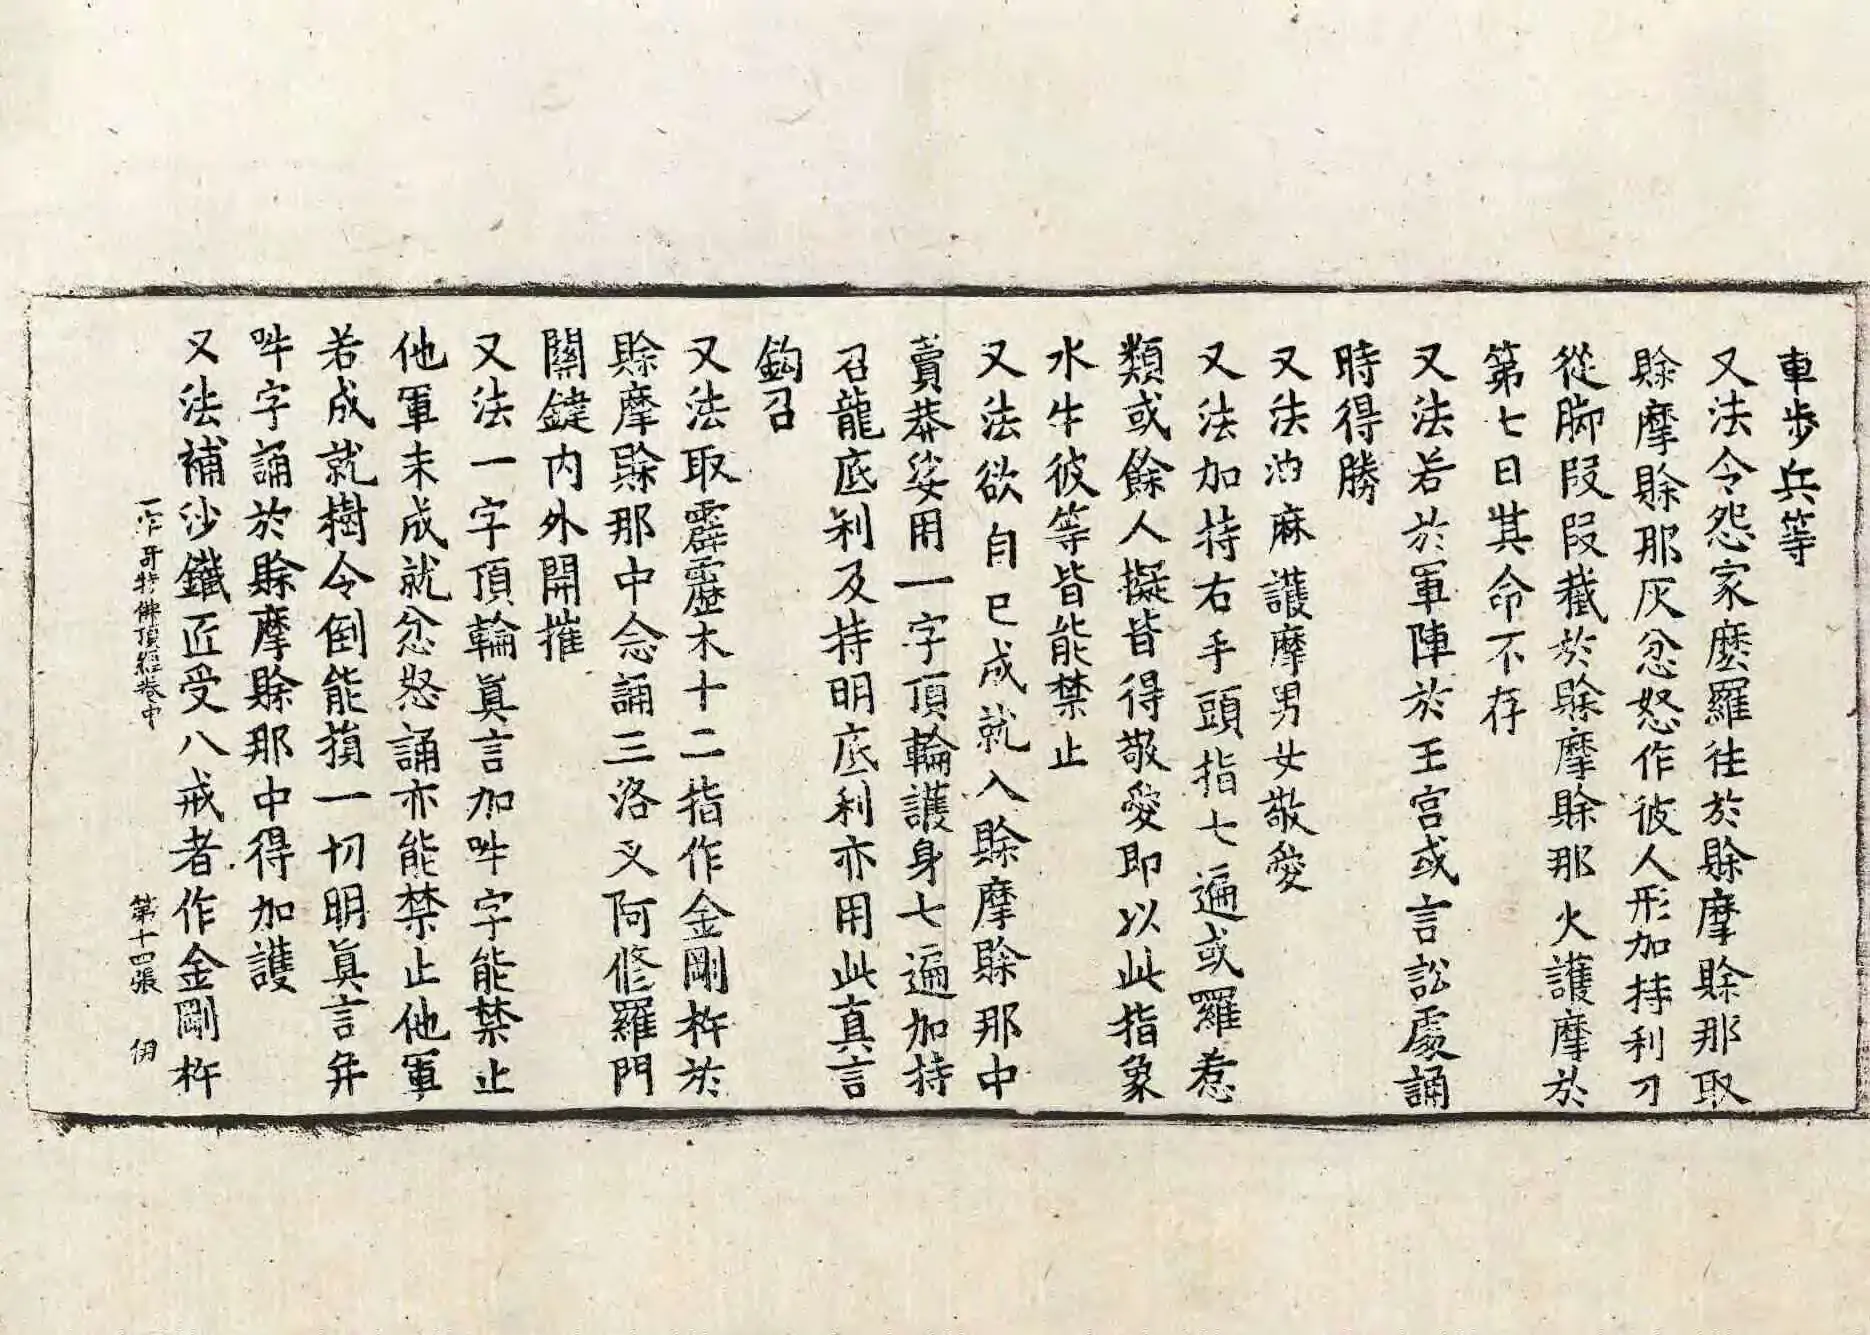 車步兵等
又法令怨家麽羅往於賒摩賒那取
賒摩賒那灰忿怒作彼人形加持利刀
從脚段段截於賒摩賒那火護摩於
第七日其命不存
又法若於軍陣於王宮或言訟處誦
時得勝
又法油麻護摩男女敬愛
又法加持右手頭指七遍或羅惹
類或餘人擬皆得敬愛即以此指象
水牛彼等皆能禁止
又法欲自己成就入賒摩賒那中
賣荼娑用一字頂輪護身七遍加持
召龍底利及持明底利亦用此真言
鈎召
又法取霹靂木十二指作金剛杵於
賒摩賒那中念誦三洛叉阿修羅門
關鍵內外開摧
又法一字頂輪真言加吽字能禁止
他軍未成就忿怒誦亦能禁止他軍
若成就樹令倒能損一切明真言并
吽字誦於賒摩賒那中得加護
又法補沙鐵匠受八戒者作金剛杵
一字奇特佛頂經卷中 第十四張 伊